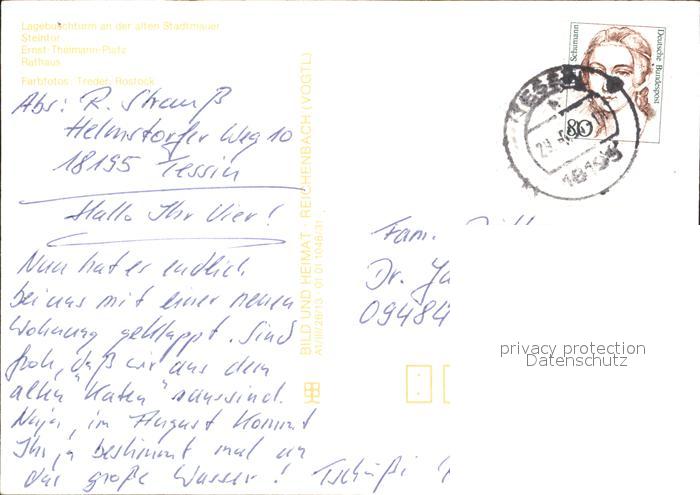 Lagebuschturm an der alten Stadtmauer
Steintor
Ernst-Thälmann-Platz
Rathaus
Farbfotos: Treder, Rostock
Abs: R. Strauß
Helmstorfer Weg 10
18195 Tessin
Hallo Ihr Vier!
Nun hat er endlich
bei uns mit einer neuen
Wohnung geklappt. Sind
froh, daß wir aus dem
alten "Katen" raussind.
Naja, im August kommt
Ihr ja bestimmt mal an
das große Wasser! Tschüßi
BILD UND HEIMAT · REICHENBACH (VOGTL)
A1/III/26/13 · 01 01 1048/31
Schumann
Deutsche Bundespost
80
TESSIN
18195
Fam.
Dr.
09484
privacy protection
Datenschutz